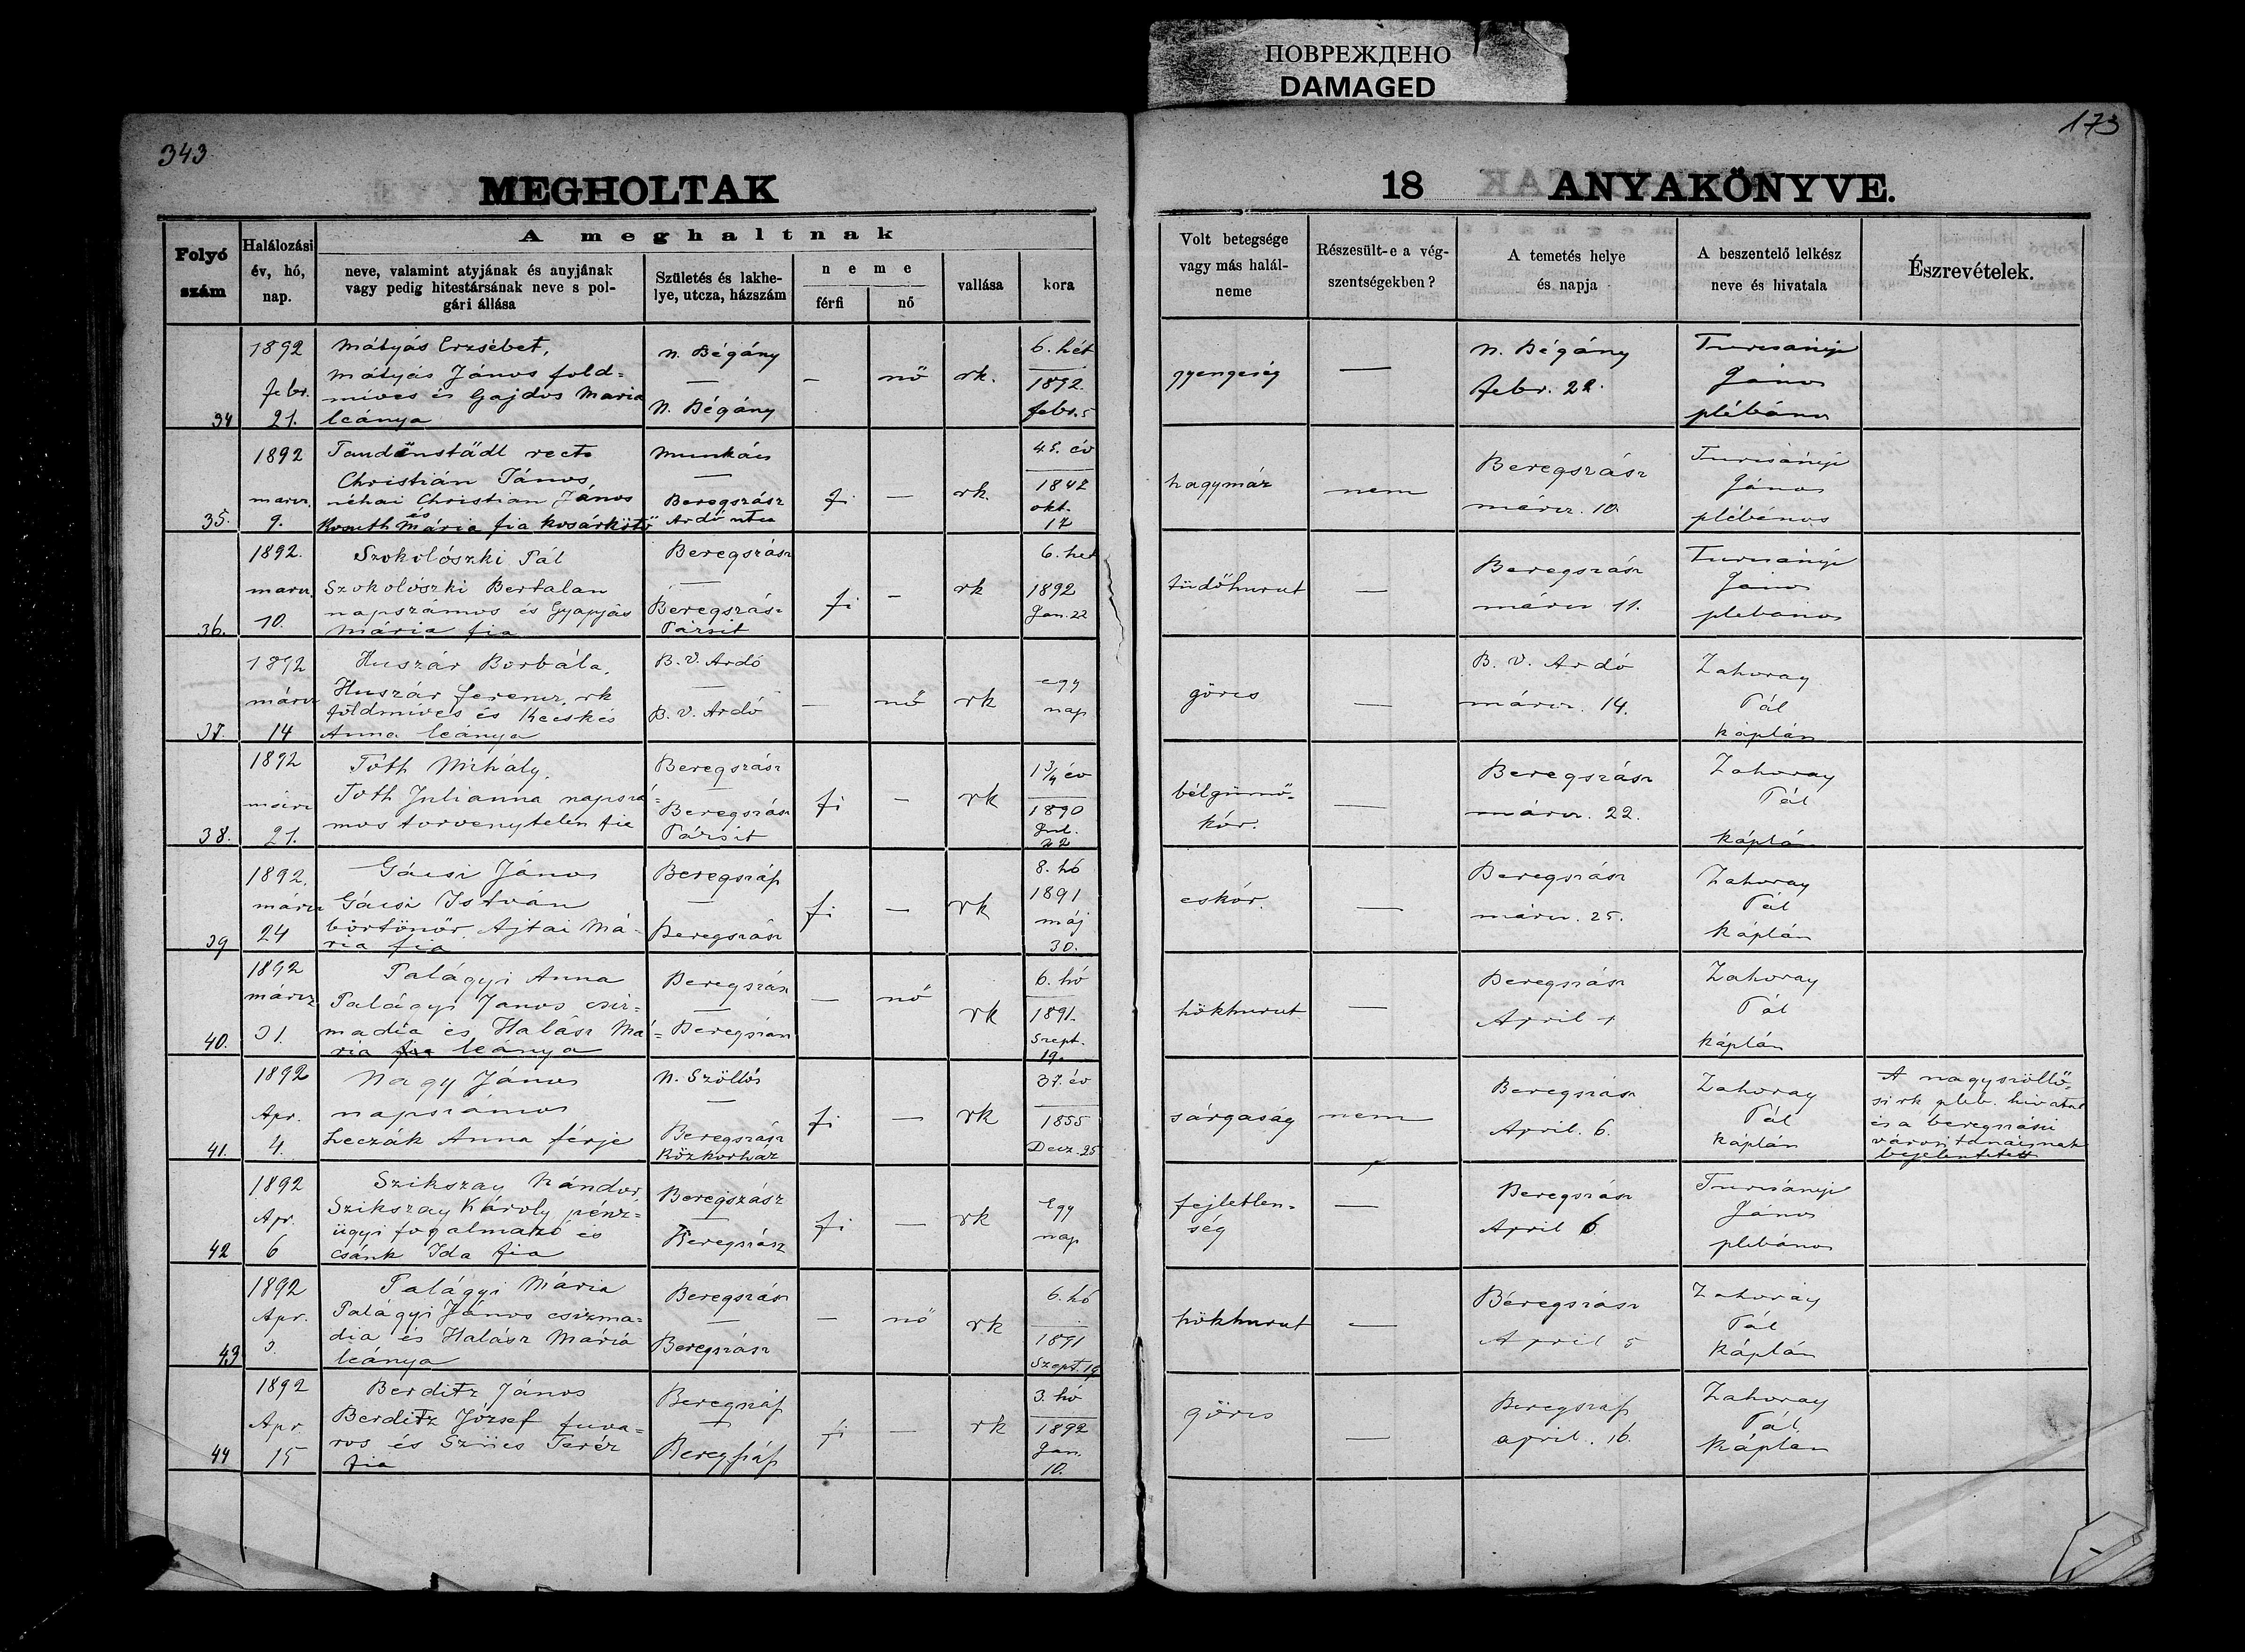 ПОВРЕЖДЕНО
DAMAGED
343
173
MEGHOLTAK
18 ANYAKÖNYVE.
Folyó
szám
Halálozási
év, hó,
nap.
A meghaltnak
neve, valamint atyjának és anyjának
vagy pedig hitestársának neve s pol-
gári állása
Születés és lakhe-
lye, utcza, házszám
neme
férfi
nő
vallása
kora
Volt betegsége
vagy más halál-
neme
Részesült-e a vég-
szentségekben?
A temetés helye
és napja
A beszentelő lelkész
neve és hivatala
Észrevételek.
34
1892
febr.
21.
Mátyás Erzsébet,
Mátyás János föld=
míves és Gajdos Maria
leánya
N. Bégány
—
N. Bégány
–
nő
rk.
6. hét
1892.
febr. 5
gyengeség
—
N. Bégány
febr. 22.
Turcsányi
János
plébános
35.
1892
marcz.
9.
Taudenstädl recte
Christián János,
néhai Christian János
és
Kosuth Mária fia kosárkötő
Munkács
—
Beregszász
Ardó utca
fi
—
rk.
45. év
1847
okt.
17
hagymáz
nem
Beregszász
márcz. 10.
Turcsányi
János
plébános
36.
1892.
marcz.
10.
Szokolószki Pál
Szokolószki Bertalan
napszámos és Gyapjás
Mária fia
Beregszász
—
Beregszász
Pársit
fi
–
rk
6. het
1892
Jan. 22
tüdőhurut
—
Beregszász
márcz 11.
Turcsányi
János
plebános
37.
1892
márcz
14
Huszár Borbála,
Huszár ferencz, rk
földmíves és Kecskés
Anna leánya
B. V. Ardó
—
B. V. Ardó
—
nő
rk
egy
nap
görcs
—
B. V. Ardó
márcz. 14.
Zahoray
Pál
káplán
38.
1892
márcz
21.
Tóth Mihály,
Toth Julianna napszá=
mos torvenytelen fia
Beregszász
—
Beregszász
Párisit
fi
–
rk
1 3/4 év
1890
Jul.
22
bélgümő-
kór.
—
Beregszász
márcz. 22.
Zahoray
Pál
káplán
39
1892.
márcz
24
Gácsi János
Gácsi István
börtönőr. Ajtai Má-
ria fia
Beregszáß
—
Beregszász
fi
—
rk
8. hó
1891
máj
30.
eskór.
—
Beregszász
márcz. 25.
Zahoray
Pál
káplán
40.
1892
márcz
31.
Palágyi Anna
Palágyi János csiz=
madia és Halász Má=
ria fia leánya
Beregszász
—
Beregszász
—
nő
rk
6. hó
1891.
Szept.
19.
hökhurut
—
Beregszász
April 1
Zahoray
Pál
káplán
41.
1892
Apr.
4.
Nagy János
napszámos
Leczák Anna férje
N. Szöllős
—
Beregszász
Közkorház
fi
—
rk
37. év
1855
Decz. 25
sárgaság
nem
Beregszász
April. 6.
Zahoray
Pál
káplán
A nagyszöllő-
si rk pleb. hivatal
és a beregszászi
városi tanácsnak
bejelentetett
42
1892
Apr.
6
Szikszay Nándor,
Szikszay Károly pénz=
ügyi fogalmazó és
Csánk Ida fia
Beregszász
—
Beregszász
fi
—
rk
Egy
nap
fejletlen=
ség
—
Beregszász
April 6
Turcsányi
János
plebános
43
1892
Apr.
3.
Palágyi Mária
Palágyi János csizma=
dia és Halász Mária
leánya
Beregszász
—
Beregszász
—
nő
rk
6. hó
1891
Szept. 19
hökhurut
—
Beregszász
April 5
Zahoray
Pál
káplán
44
1892
Apr.
15
Berditz János
Berditz József fuva=
ros és Szücs Teréz
fia
Beregszáß
—
Beregszáß
fi
—
rk
3. hó
1892
Jan.
10.
görcs
—
Beregszáß
april. 16.
Zahoray
Pál
Káplán